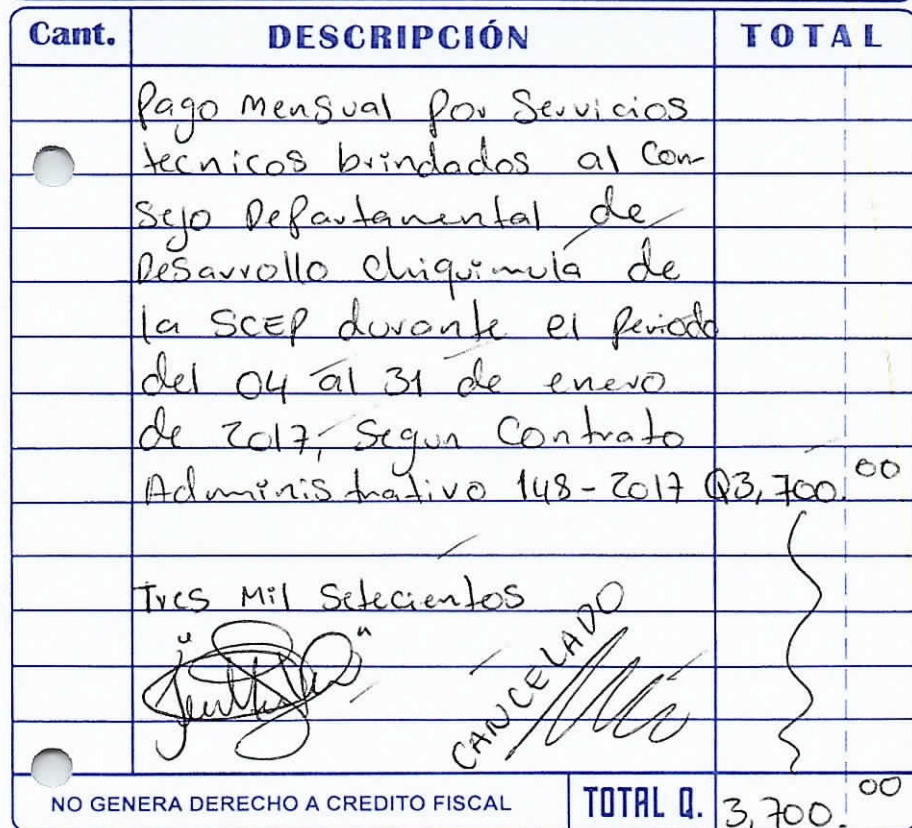 Cant. DESCRIPCIÓN TOTAL
Pago Mensual Por Servicios
tecnicos brindados al Con-
sejo Departamental de
Desarrollo Chiquimula de
la SCEP durante el Periodo
del 04 al 31 de enero
de 2017, Segun Contrato
Administrativo 148-2017 Q3,700.00
Tres Mil Setecientos
CANCELADO
NO GENERA DERECHO A CREDITO FISCAL TOTAL Q. 3,700.00